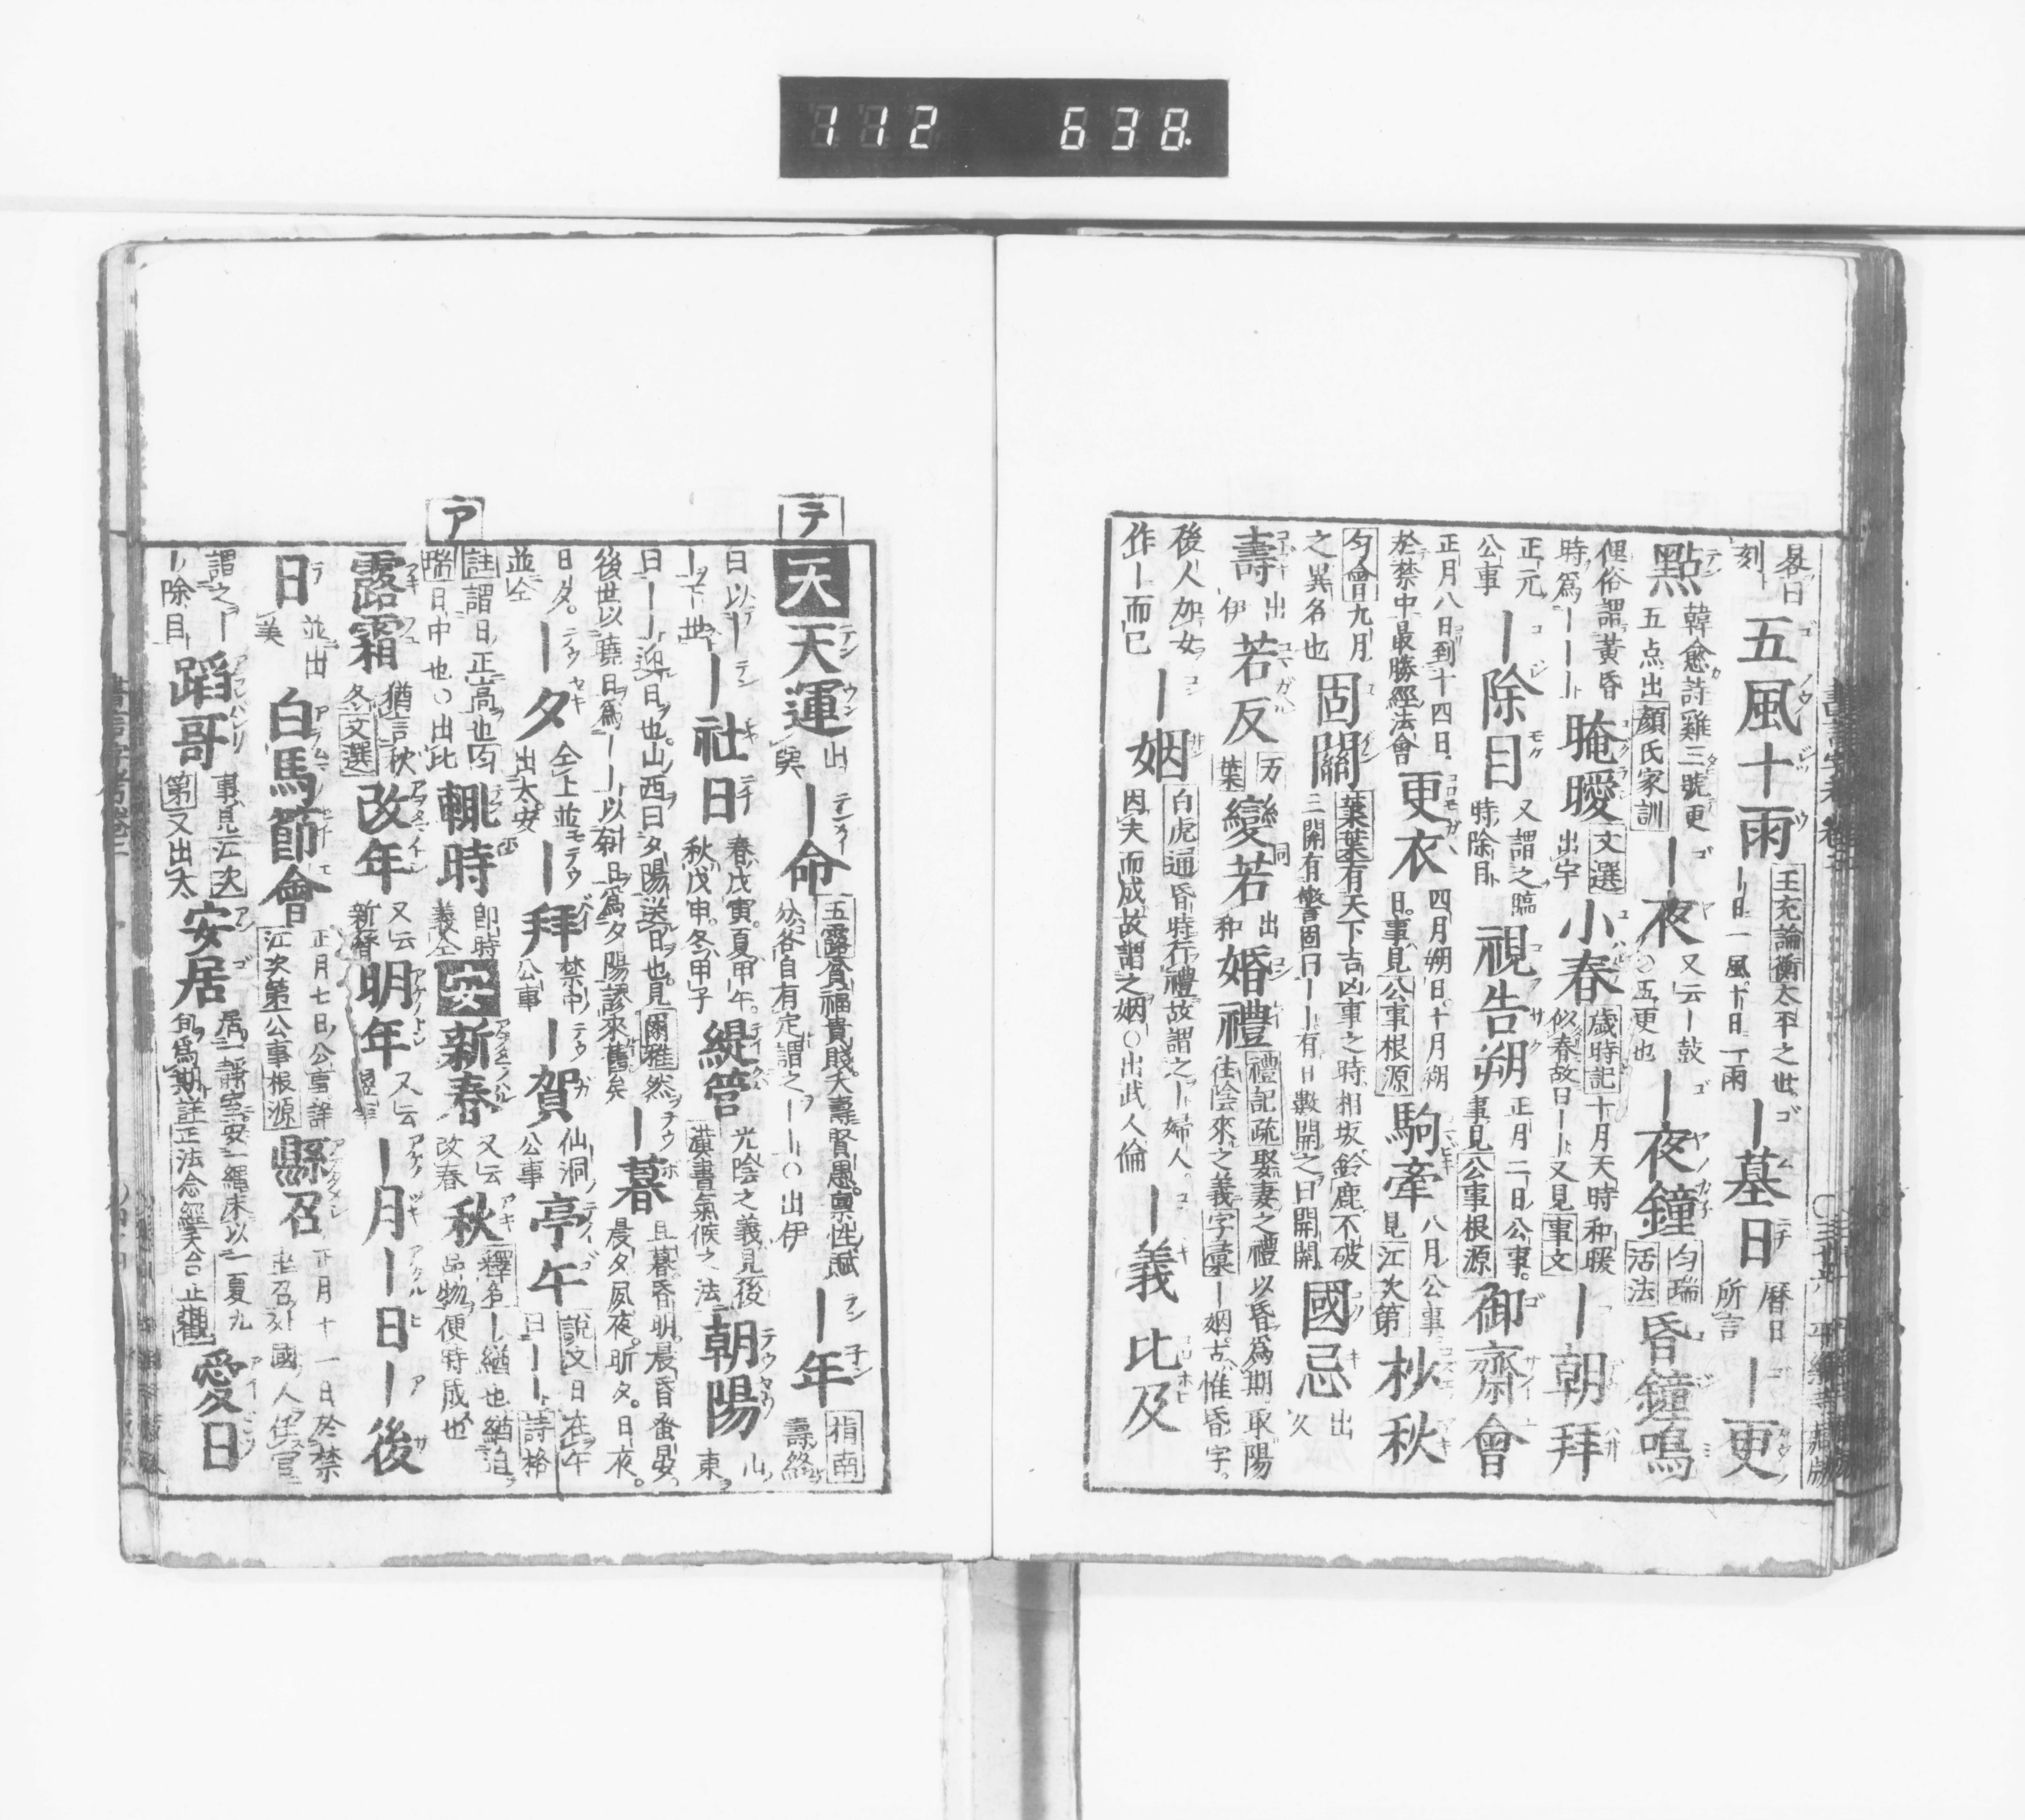 112 638.
畧曰
刻 五風十雨 王充論衡太平之世
一日一風十日一雨 ―墓日 暦日
所言 ―更
點 韓愈詩雞三號更
五点出顔氏家訓 ―夜 又云―鼓
○五更也 ―夜鐘 匀瑞
活法 昏鐘鳴
俚俗謂黃昏
時爲――― 晻曖 文選
出字 小春 歳時記十月天時和暖
似春故曰――又見事文 ―朝拜
正元
公事 ―除目 又謂之臨
時除目 視告朔 正月二日公事
事見公事根源 御齋會
正月八日到十四日
於禁中最勝經法會 更衣 四月朔日十月朔
日事見公事根源 駒牽 八月公事
見江次第 杪秋
匀會九月
之異名也 固關 葉葉有天下吉凶事之時相坂鈴鹿不破
三關有警固曰――有日數開之曰開關 國忌 出
久
壽 出
伊 若反 万
葉 變若 同 出
和 婚禮 禮記疏娶妻之禮以昏爲期取陽
往陰來之義字彙―姻古惟昏字
後人加女
作―而已 ―姻 白虎通昏時行禮故謂之―婦人
因夫而成故謂之姻○出武人倫 ―義 比及
テ
天 天運 出
與 ―命 五露窮福貴賤夭壽賢愚稟性賦
分各自有定謂之――○出伊 ―年 指南
壽終
曰以―
―下世 ―社日 春戊寅夏甲午
秋戊申冬甲子 緹管 光陰之義見後
漢書氣候之法 朝陽 山
東
曰――迎日也山西曰夕陽送日也見爾雅然
後世以曉日爲――以斜日爲夕陽謬來舊矣 ―暮 旦暮昏明晨昏蚤晏
晨夕夙夜昕夕日夜
日夕
並仝 ―夕 仝上並
出太安 ―拜 禁中
公事 ―賀 仙洞
公事 亭午 説文日在午
曰――詩格
註謂日正高也匀
瑞日中也○出比 輒時 即時
義仝 安 新春 又云
改春 秋 釋名―緧也緧迫
品物便時成也
ア
露霜 猶言秋
冬文選 改年 又云
新暦 明年 又云
翌年 ―月―日―後
日 並出
美 白馬節會 正月七日公事詳
江次第公事根源 縣召 正月十一日於禁
中召外國人任官
謂之―
―除目 蹈哥 事見江次
第又出太 安居 居
旬爲期註正法念經天台止觀 愛日